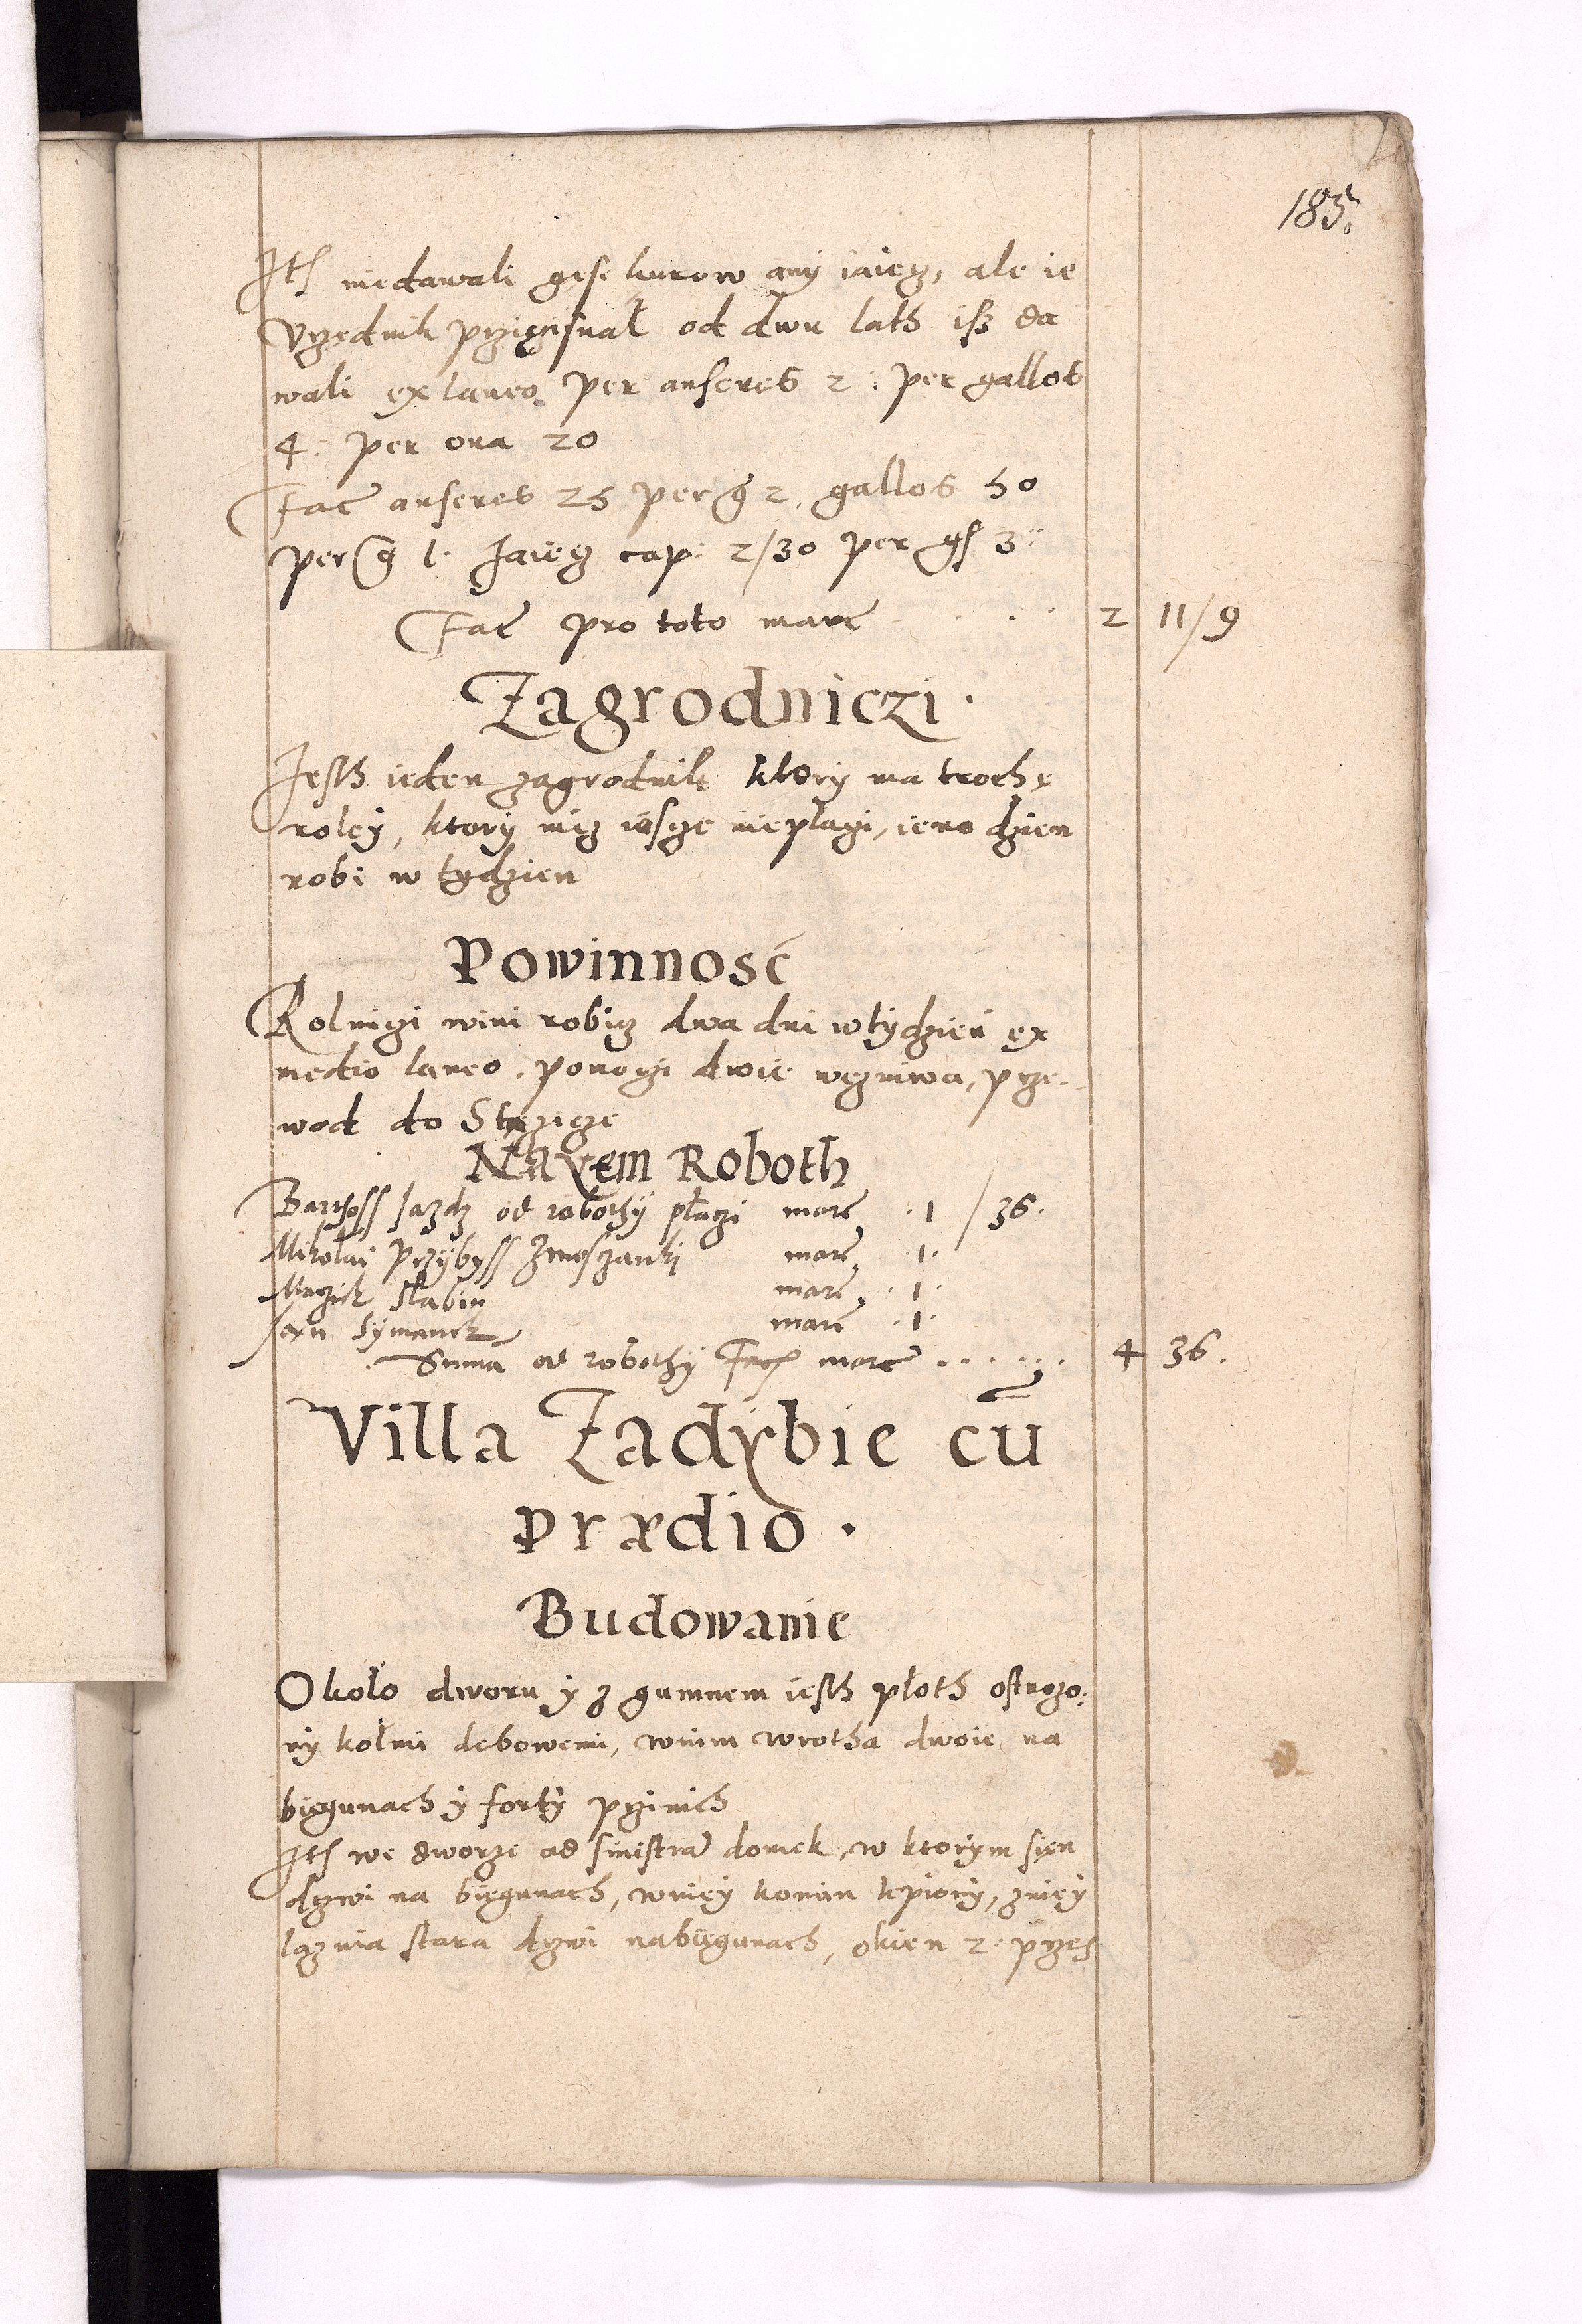 185.
Ith niedawali gęsi kurow any iaiecz, ale ie
Vrzednik przycisnał od dwu lath isz da
wali ex laneo per anseres 2 : per gallos
4 : per oua 20
Fac̃ anseres 25 per g̃ 2, gallos 50
per g̃ 1. Jaiecz cap: 2/30 per gs 3 :
Fac̃ pro toto marc̃ . . . 2 11/9
Zagrodniczi .
Jesth ieden zagrodnik ktory ma trochę
roley, ktory nicz iescze nieplaczi, ieno dzien
robi w tydzien
Powinnosć
Rolniczi wini robicz dwa dni w tydzień ex
medio laneo . ponoczi dwie wezniwa, prze-
wod do Stęzicze
Nayem Roboth
Barthoss Jazdz od robothy płaczi marc̃ . 1 / 36.
Mikołai Przybyss Zmosczanki marc̃ . 1 .
Maczick Słabin marc̃ . 1 .
Jan Symanek marc̃ . 1 .
Suma od robothy Fac̃ marc̃ . . . . . . 4 36.
Villa Zadybie cũ
prædio .
Budowanie
Około dworu y z gumnem iesth płoth ostrozo:
ny kolmi debowemi, wnim wrotha dwoie na
biegunach y forty przinich
Ith we dworze ad sinistrã domek, w ktorym sien
drzwi na biegunach, wniey komin lepiony, zniey
laznia stara drzwi nabiegunach, okien 2 : przes